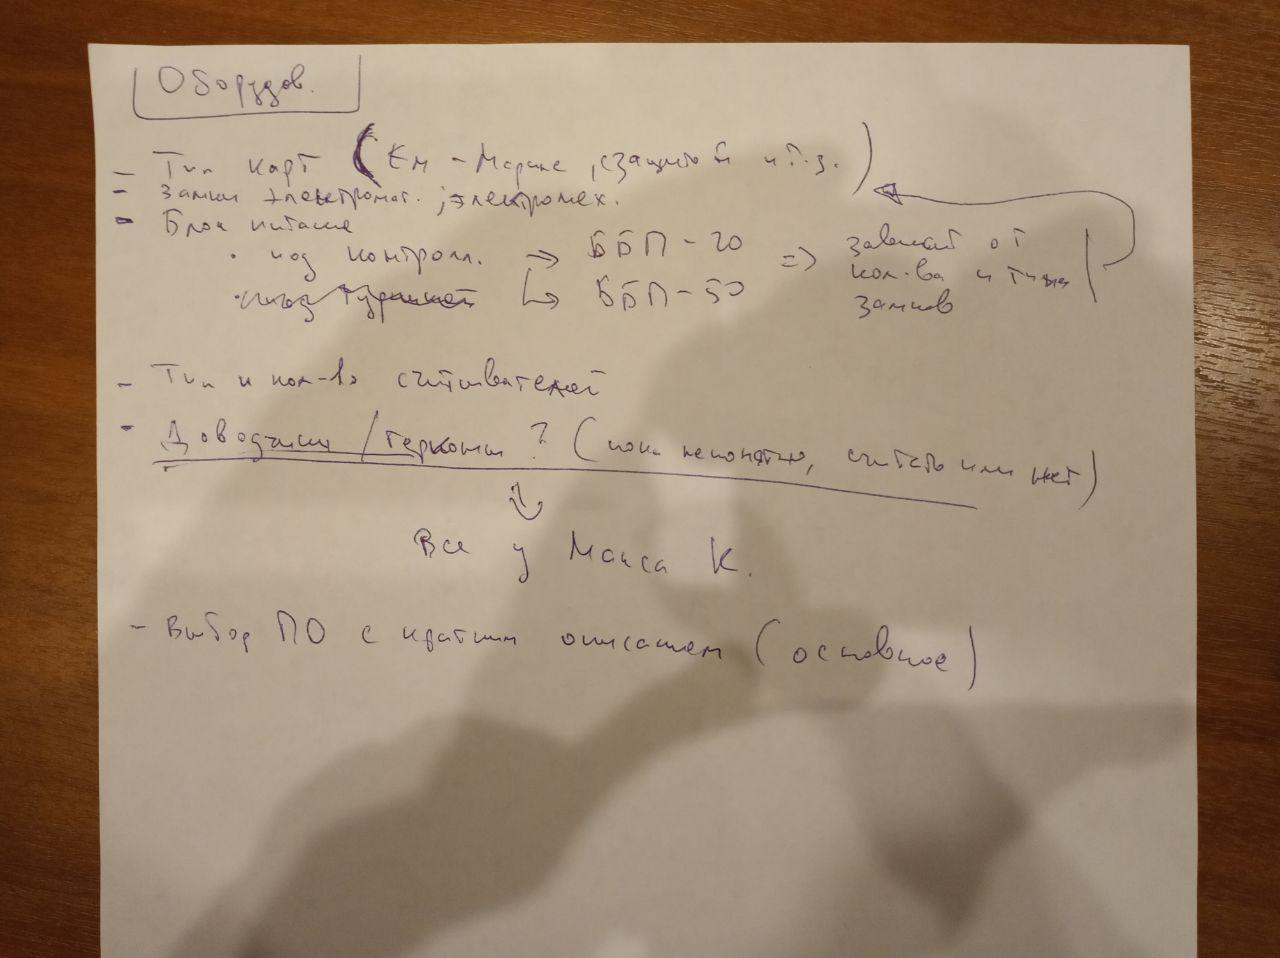 Оборудов.
- Тип карт (Ем-Марине, с защитой и т.д.)
- Замки электромаг.; электромех.
- Блок питания
· под контролл. => ББП-20 => зависит от
кол-ва и типа
замков
· под турникет -> ББП-50
- Тип и кол-во считывателей
- Доводчики/герконы? (пока непонятно, считать или нет)
Все у Макса К.
- Выбор ПО с кратким описанием (основное)